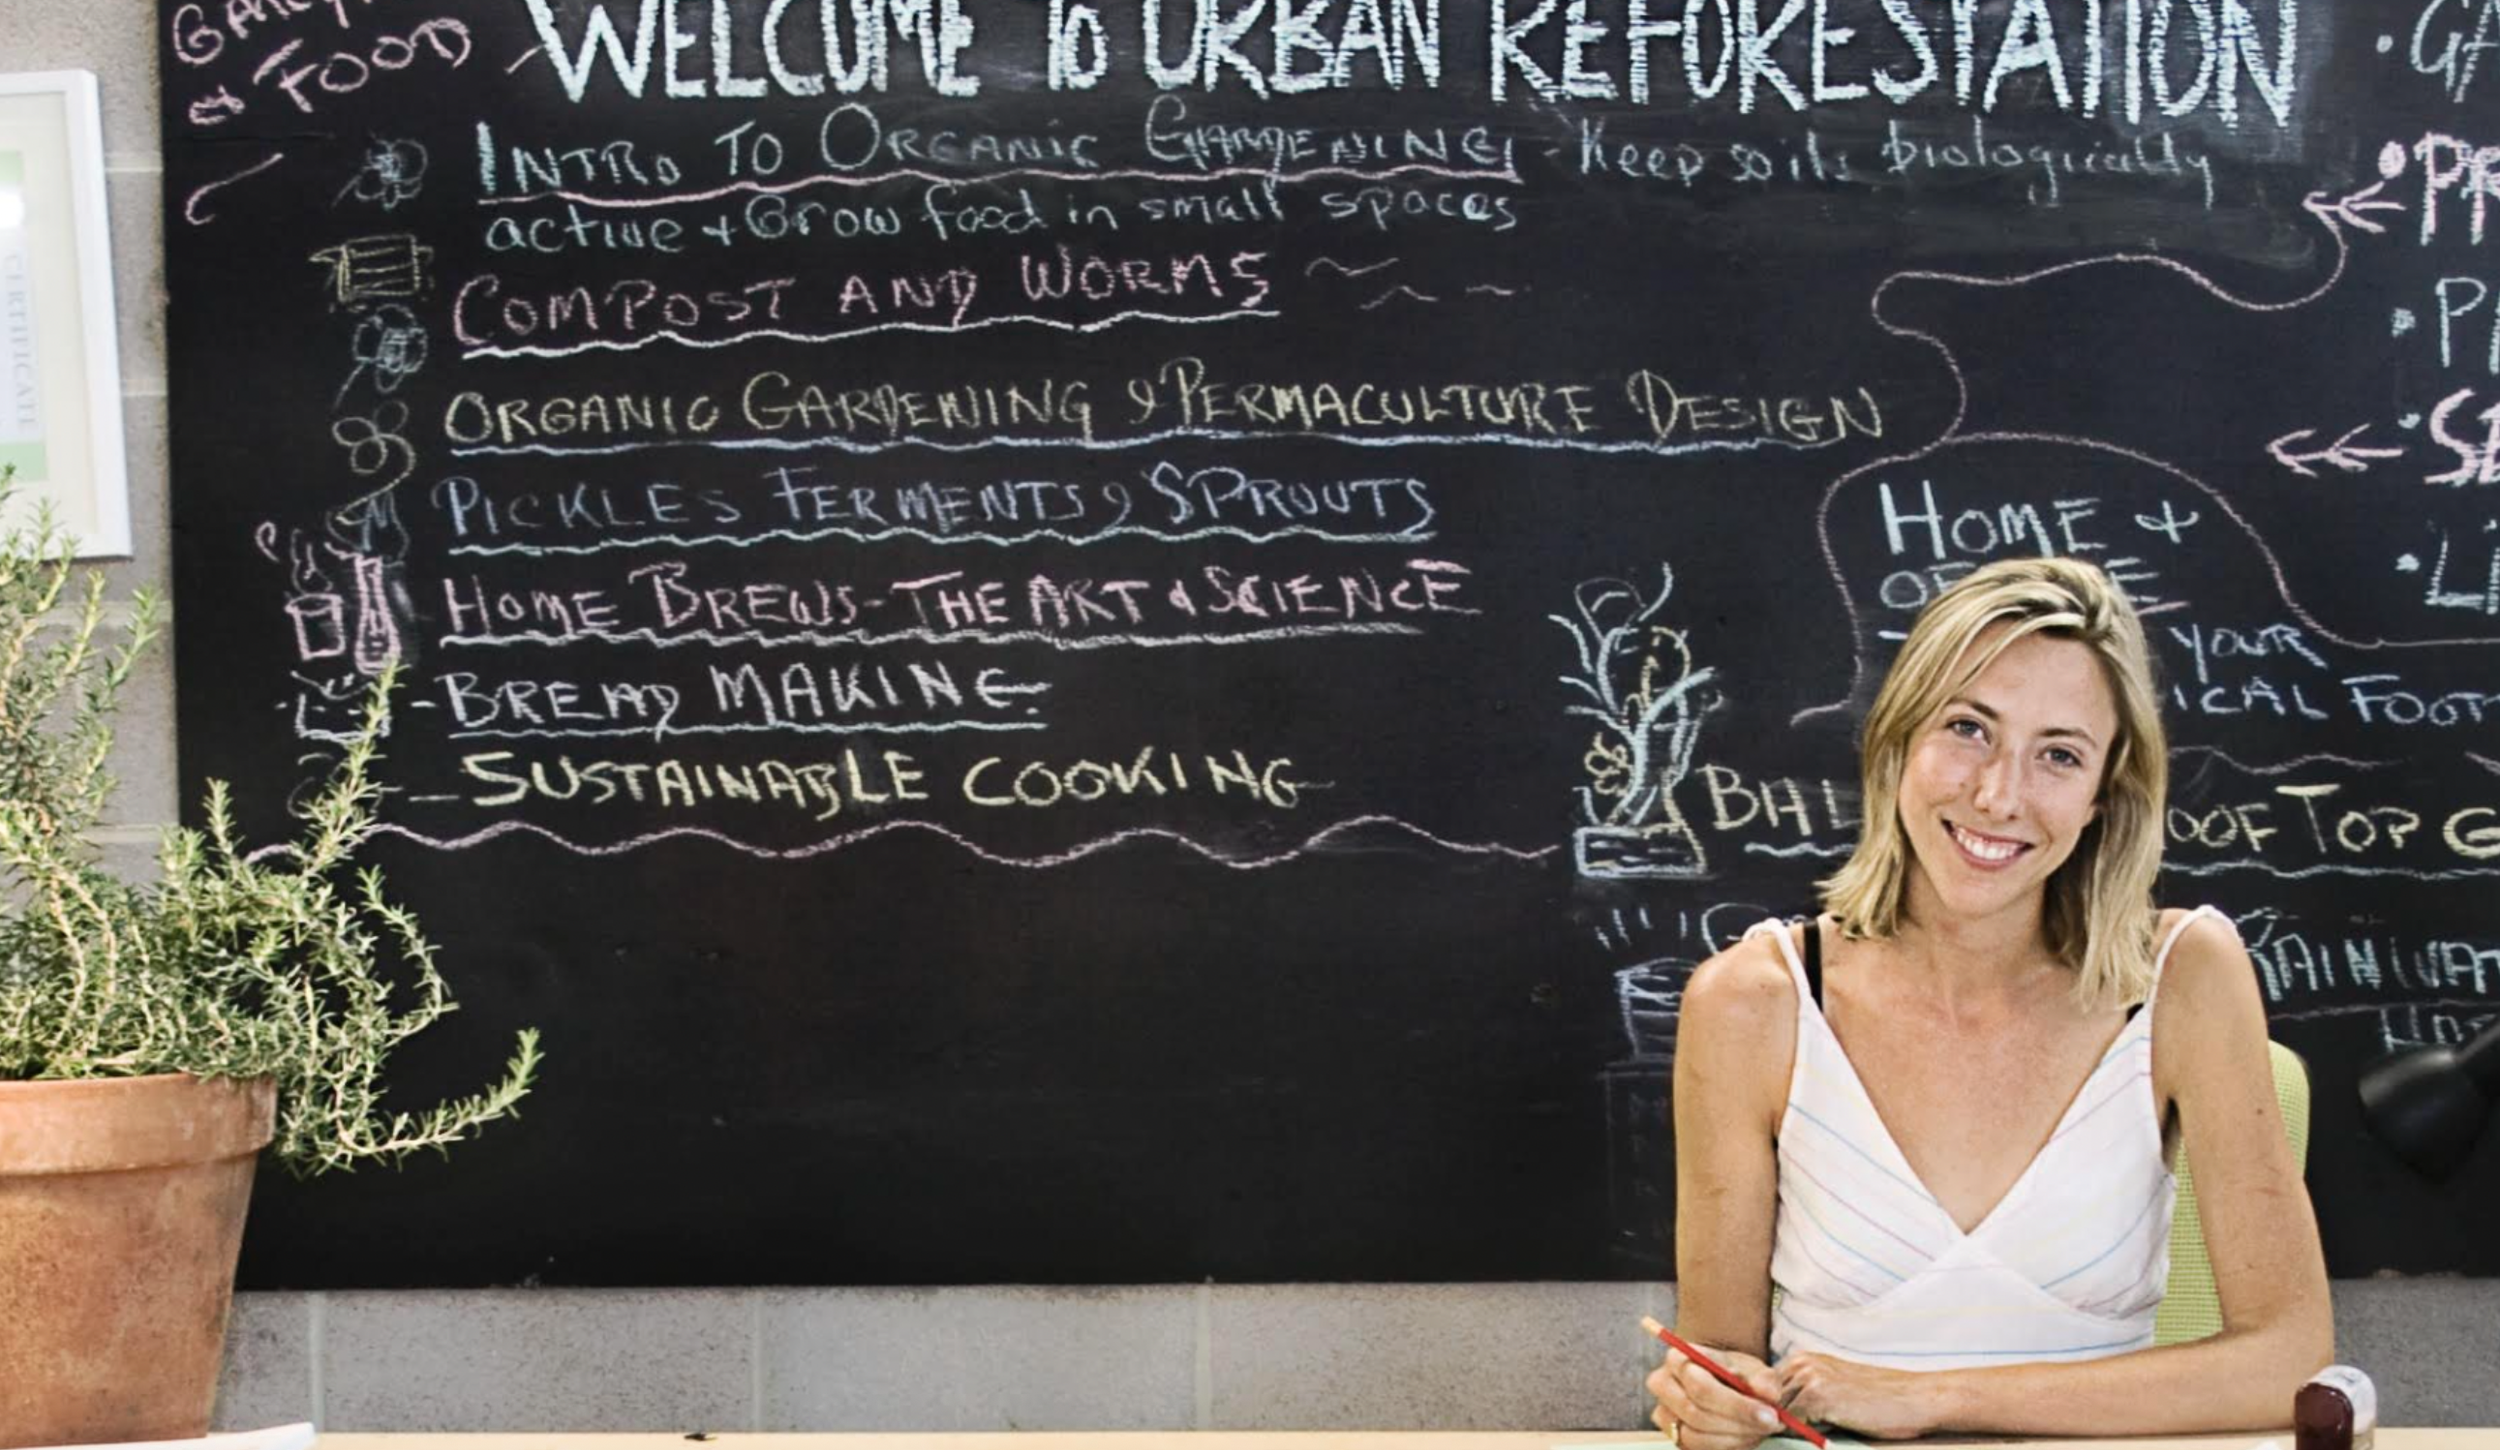 & FOOD
WELCOME TO URBAN REFORESTATION
INTRO TO ORGANIC GARDENING - Keep soils biologically
active + Grow food in small spaces
COMPOST AND WORMS
ORGANIC GARDENING & PERMACULTURE DESIGN
PICKLES FERMENTS & SPROUTS
HOME BREWS - THE ART & SCIENCE
- BREAD MAKING
- SUSTAINABLE COOKING
HOME +
YOUR
ICAL FOOT
BAL OOF TOP G
RAINWAT
CERTIFICATE